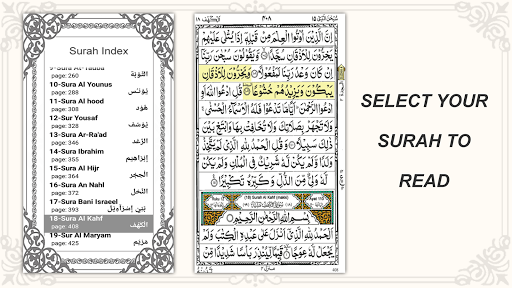 Surah Index
9-Sura Al-Tauba
page: 260
التَّوْبَة
10-Sura Al Younus
page: 288
يُوْنُس
11-Sura Al hood
page: 308
هُوْد
12-Sur Yousaf
page: 328
يُوْسُف
13-Sura Ar-Ra'ad
page: 346
الرَّعْد
14-Sura Ibrahim
page: 355
إِبْرَاهِيْم
15-Sura Al Hijr
page: 364
الْحِجْر
16-Sura An Nahl
page: 372
النَّحْل
17-Sura Bani Israeel
page: 393
بَنِيْ إِسْرَآءِيْل
18-Sura Al Kahf
page: 408
الْكَهْف
19-Sur Al Maryam
page: 425
مَرْيَم
اِنَّ الَّذِيْنَ اُوْتُوا الْعِلْمَ مِنْ قَبْلِهٖٓ اِذَا يُتْلٰى عَلَيْهِمْ
يَخِرُّوْنَ لِلْاَذْقَانِ سُجَّدًا وَّيَقُوْلُوْنَ سُبْحٰنَ رَبِّنَآ
اِنْ كَانَ وَعْدُ رَبِّنَا لَمَفْعُوْلًا وَيَخِرُّوْنَ لِلْاَذْقَانِ
يَبْكُوْنَ وَيَزِيْدُهُمْ خُشُوْعًا قُلِ ادْعُوا اللّٰهَ اَوِ
ادْعُوا الرَّحْمٰنَ اَيًّا مَّا تَدْعُوْا فَلَهُ الْاَسْمَآءُ الْحُسْنٰى
وَلَا تَجْهَرْ بِصَلَاتِكَ وَلَا تُخَافِتْ بِهَا وَابْتَغِ بَيْنَ
ذٰلِكَ سَبِيْلًا وَقُلِ الْحَمْدُ لِلّٰهِ الَّذِيْ لَمْ يَتَّخِذْ
وَلَدًا وَّلَمْ يَكُنْ لَّهٗ شَرِيْكٌ فِي الْمُلْكِ وَلَمْ يَكُنْ
لَّهٗ وَلِيٌّ مِّنَ الذُّلِّ وَكَبِّرْهُ تَكْبِيْرًا
بِسْمِ اللّٰهِ الرَّحْمٰنِ الرَّحِيْمِ
اَلْحَمْدُ لِلّٰهِ الَّذِيْٓ اَنْزَلَ عَلٰى عَبْدِهِ الْكِتٰبَ وَلَمْ
يَجْعَلْ لَّهٗ عِوَجًا قَيِّمًا لِّيُنْذِرَ بَاْسًا شَدِيْدًا مِّنْ
SELECT YOUR
SURAH TO
READ